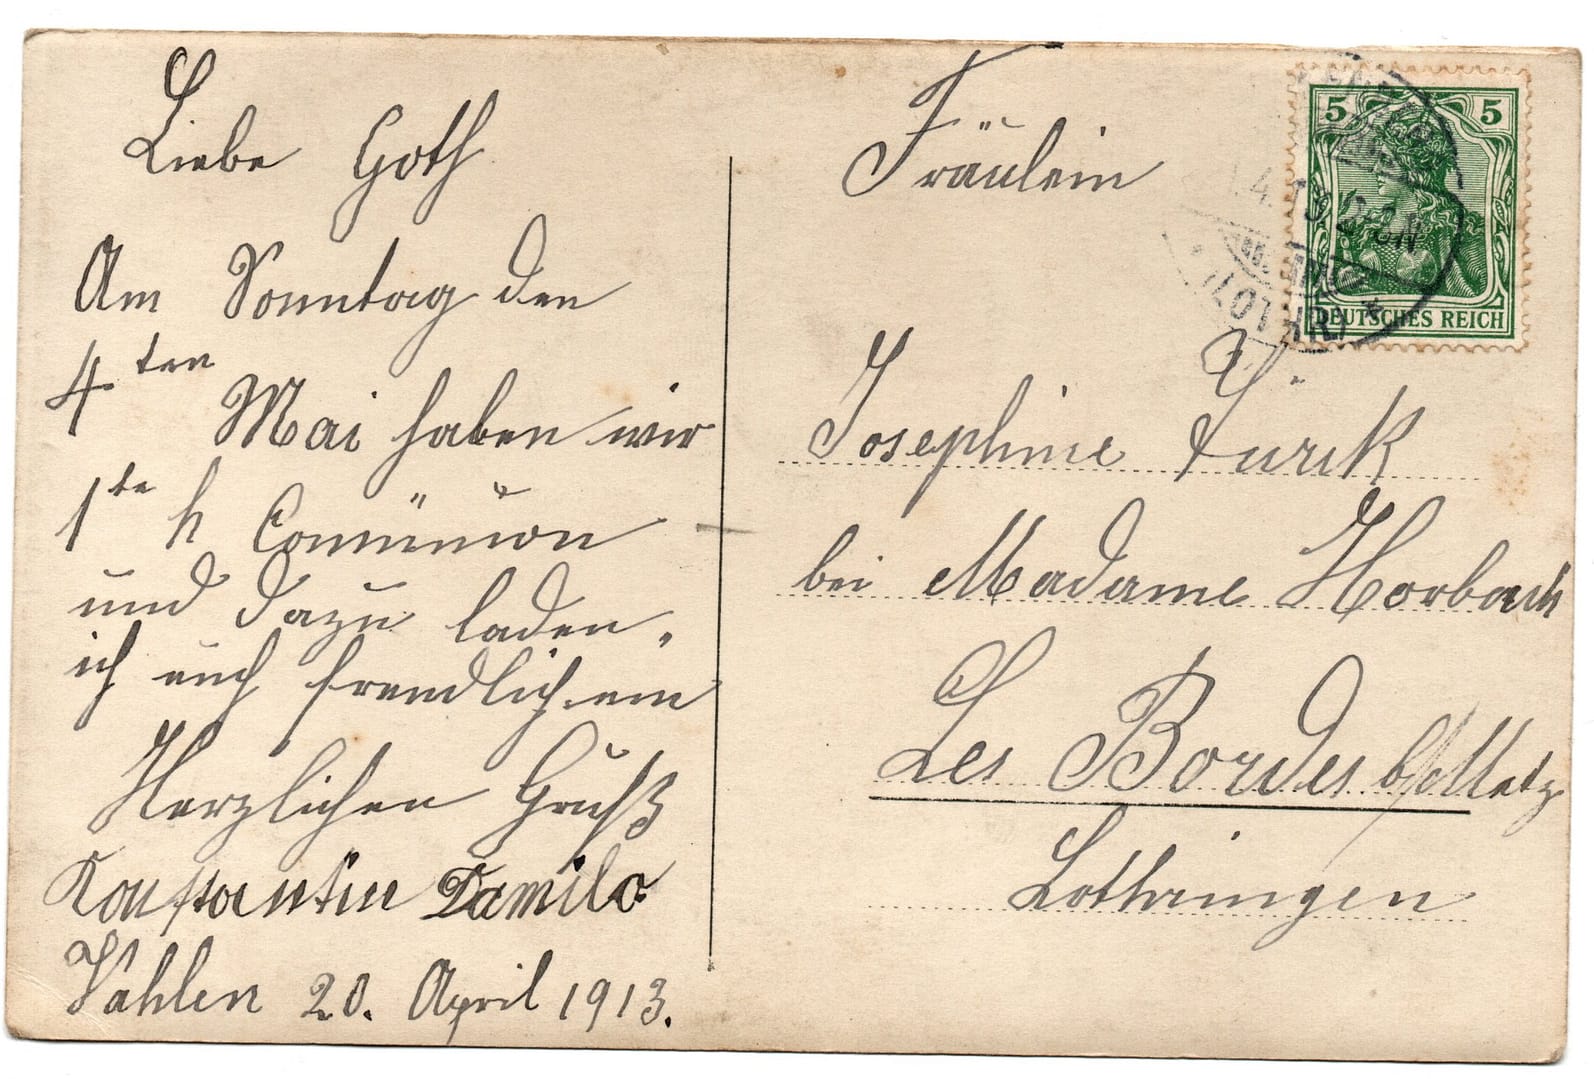 Liebe Goth
Am Sonntag den
4ten Mai haben wir
1te h Comunion
und dazu laden
ich euch freundlich ein
Herzlichen Gruß
Konstantin Damilo
Vahlen 20. April 1913.
Fräulein
Josephine Turck
bei Madame Horbach
Les Bordes b/Metz
Lothringen
5 5
DEUTSCHES REICH
(LOTHR)